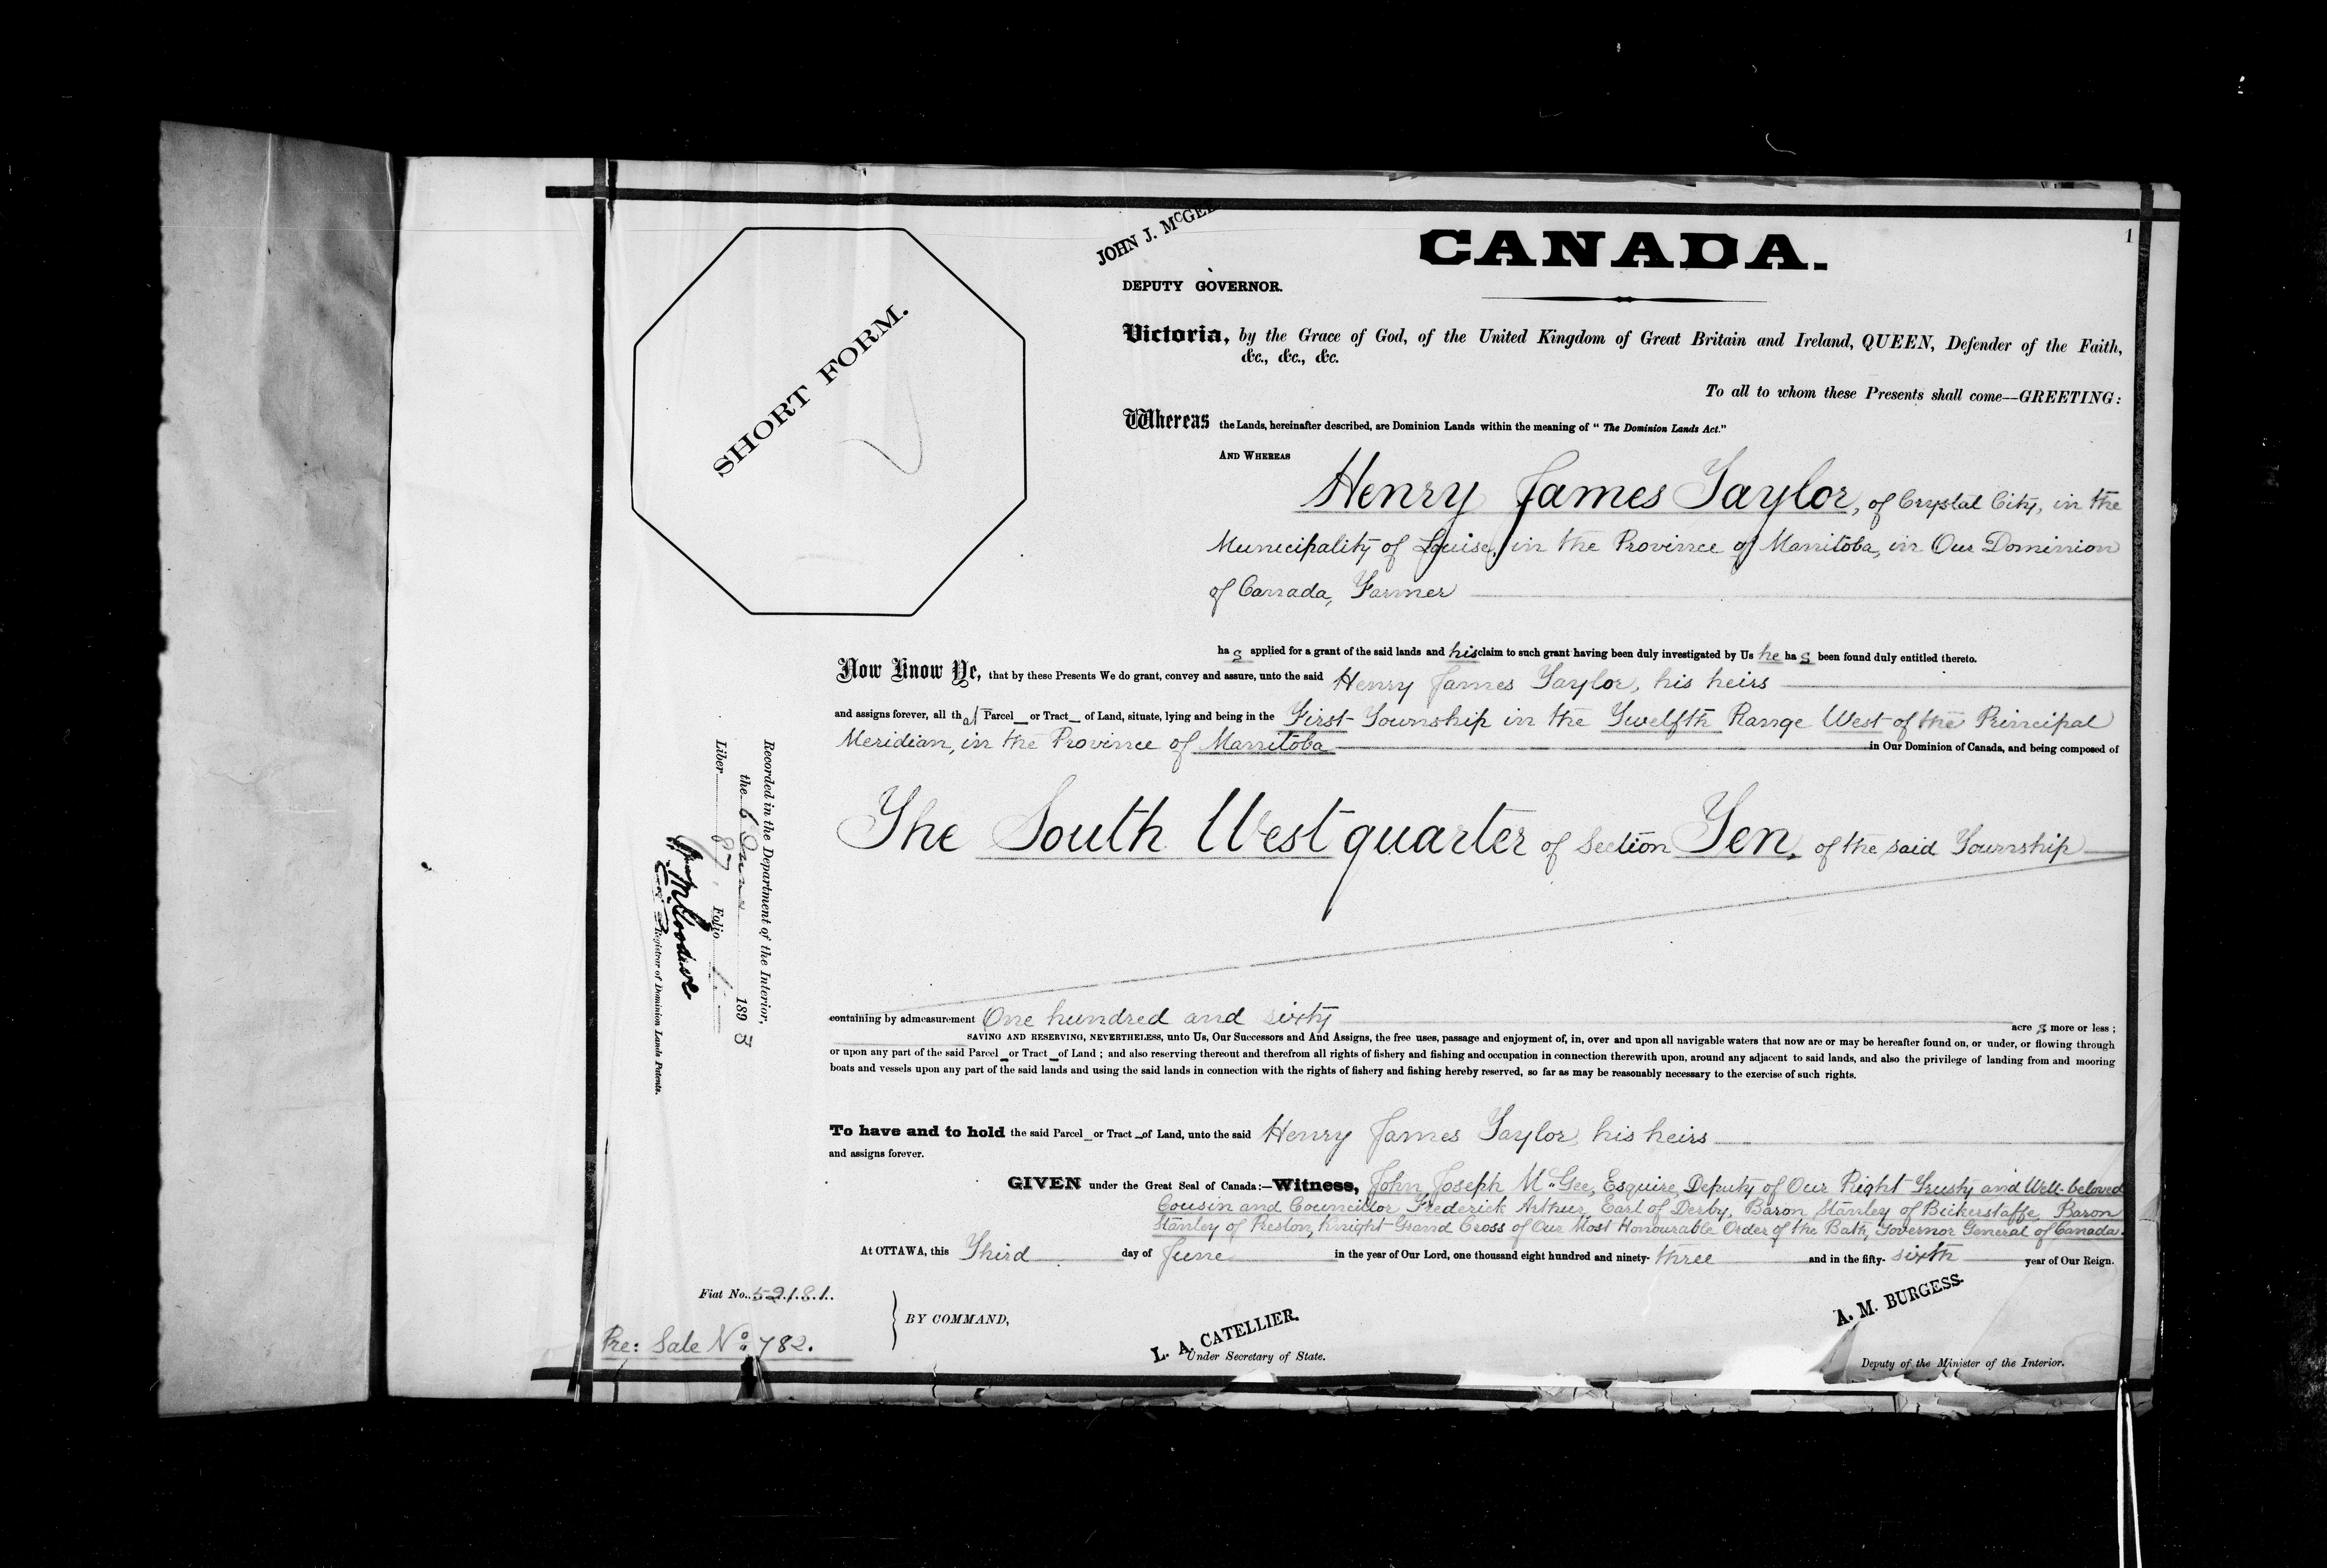 1
JOHN J. McGEE
CANADA.
DEPUTY GOVERNOR.
SHORT FORM.
Victoria, by the Grace of God, of the United Kingdom of Great Britain and Ireland, QUEEN, Defender of the Faith,
&c., &c., &c.
To all to whom these Presents shall come—GREETING:
Whereas the Lands, hereinafter described, are Dominion Lands within the meaning of "The Dominion Lands Act."
AND WHEREAS
Henry James Taylor, of Crystal City, in the
Municipality of Louise, in the Province of Manitoba, in Our Dominion
of Canada, Farmer
has applied for a grant of the said lands and his claim to such grant having been duly investigated by Us he has been found duly entitled thereto.
Now Know Ye, that by these Presents We do grant, convey and assure, unto the said Henry James Taylor, his heirs
and assigns forever, all that Parcel or Tract of Land, situate, lying and being in the First Township in the Twelfth Range West of the Principal
Meridian, in the Province of Manitoba in Our Dominion of Canada, and being composed of
The South West quarter of Section Ten, of the said Township
containing by admeasurement One hundred and sixty acres more or less;
SAVING AND RESERVING, NEVERTHELESS, unto Us, Our Successors and And Assigns, the free uses, passage and enjoyment of, in, over and upon all navigable waters that now are or may be hereafter found on, or under, or flowing through
or upon any part of the said Parcel or Tract of Land; and also reserving thereout and therefrom all rights of fishery and fishing and occupation in connection therewith upon, around any adjacent to said lands, and also the privilege of landing from and mooring
boats and vessels upon any part of the said lands and using the said lands in connection with the rights of fishery and fishing hereby reserved, so far as may be reasonably necessary to the exercise of such rights.
To have and to hold the said Parcel or Tract of Land, unto the said Henry James Taylor, his heirs
and assigns forever.
GIVEN under the Great Seal of Canada:—Witness, John Joseph McGee, Esquire, Deputy of Our Right Trusty and Well-beloved
Cousin and Councillor Frederick Arthur, Earl of Derby, Baron Stanley of Bickerstaffe, Baron
Stanley of Preston, Knight Grand Cross of Our Most Honourable Order of the Bath, Governor General of Canada.
At OTTAWA, this Third day of June in the year of Our Lord, one thousand eight hundred and ninety-three and in the fifty-sixth year of Our Reign.
Fiat No. 52181.
BY COMMAND,
L. A. CATELLIER.
Under Secretary of State.
A. M. BURGESS.
Deputy of the Minister of the Interior.
Pre: Sale No: 782.
Recorded in the Department of the Interior,
the 6 June 1893
Liber 87. Folio 1.
Registrar of Dominion Lands Patents.